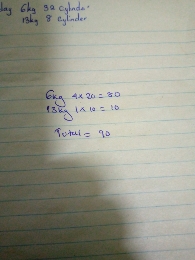 day 6kg 32 Cylinder
13kg 8 Cylinder
6kg 4x20=80
13kg 1x10=10
Total= 90